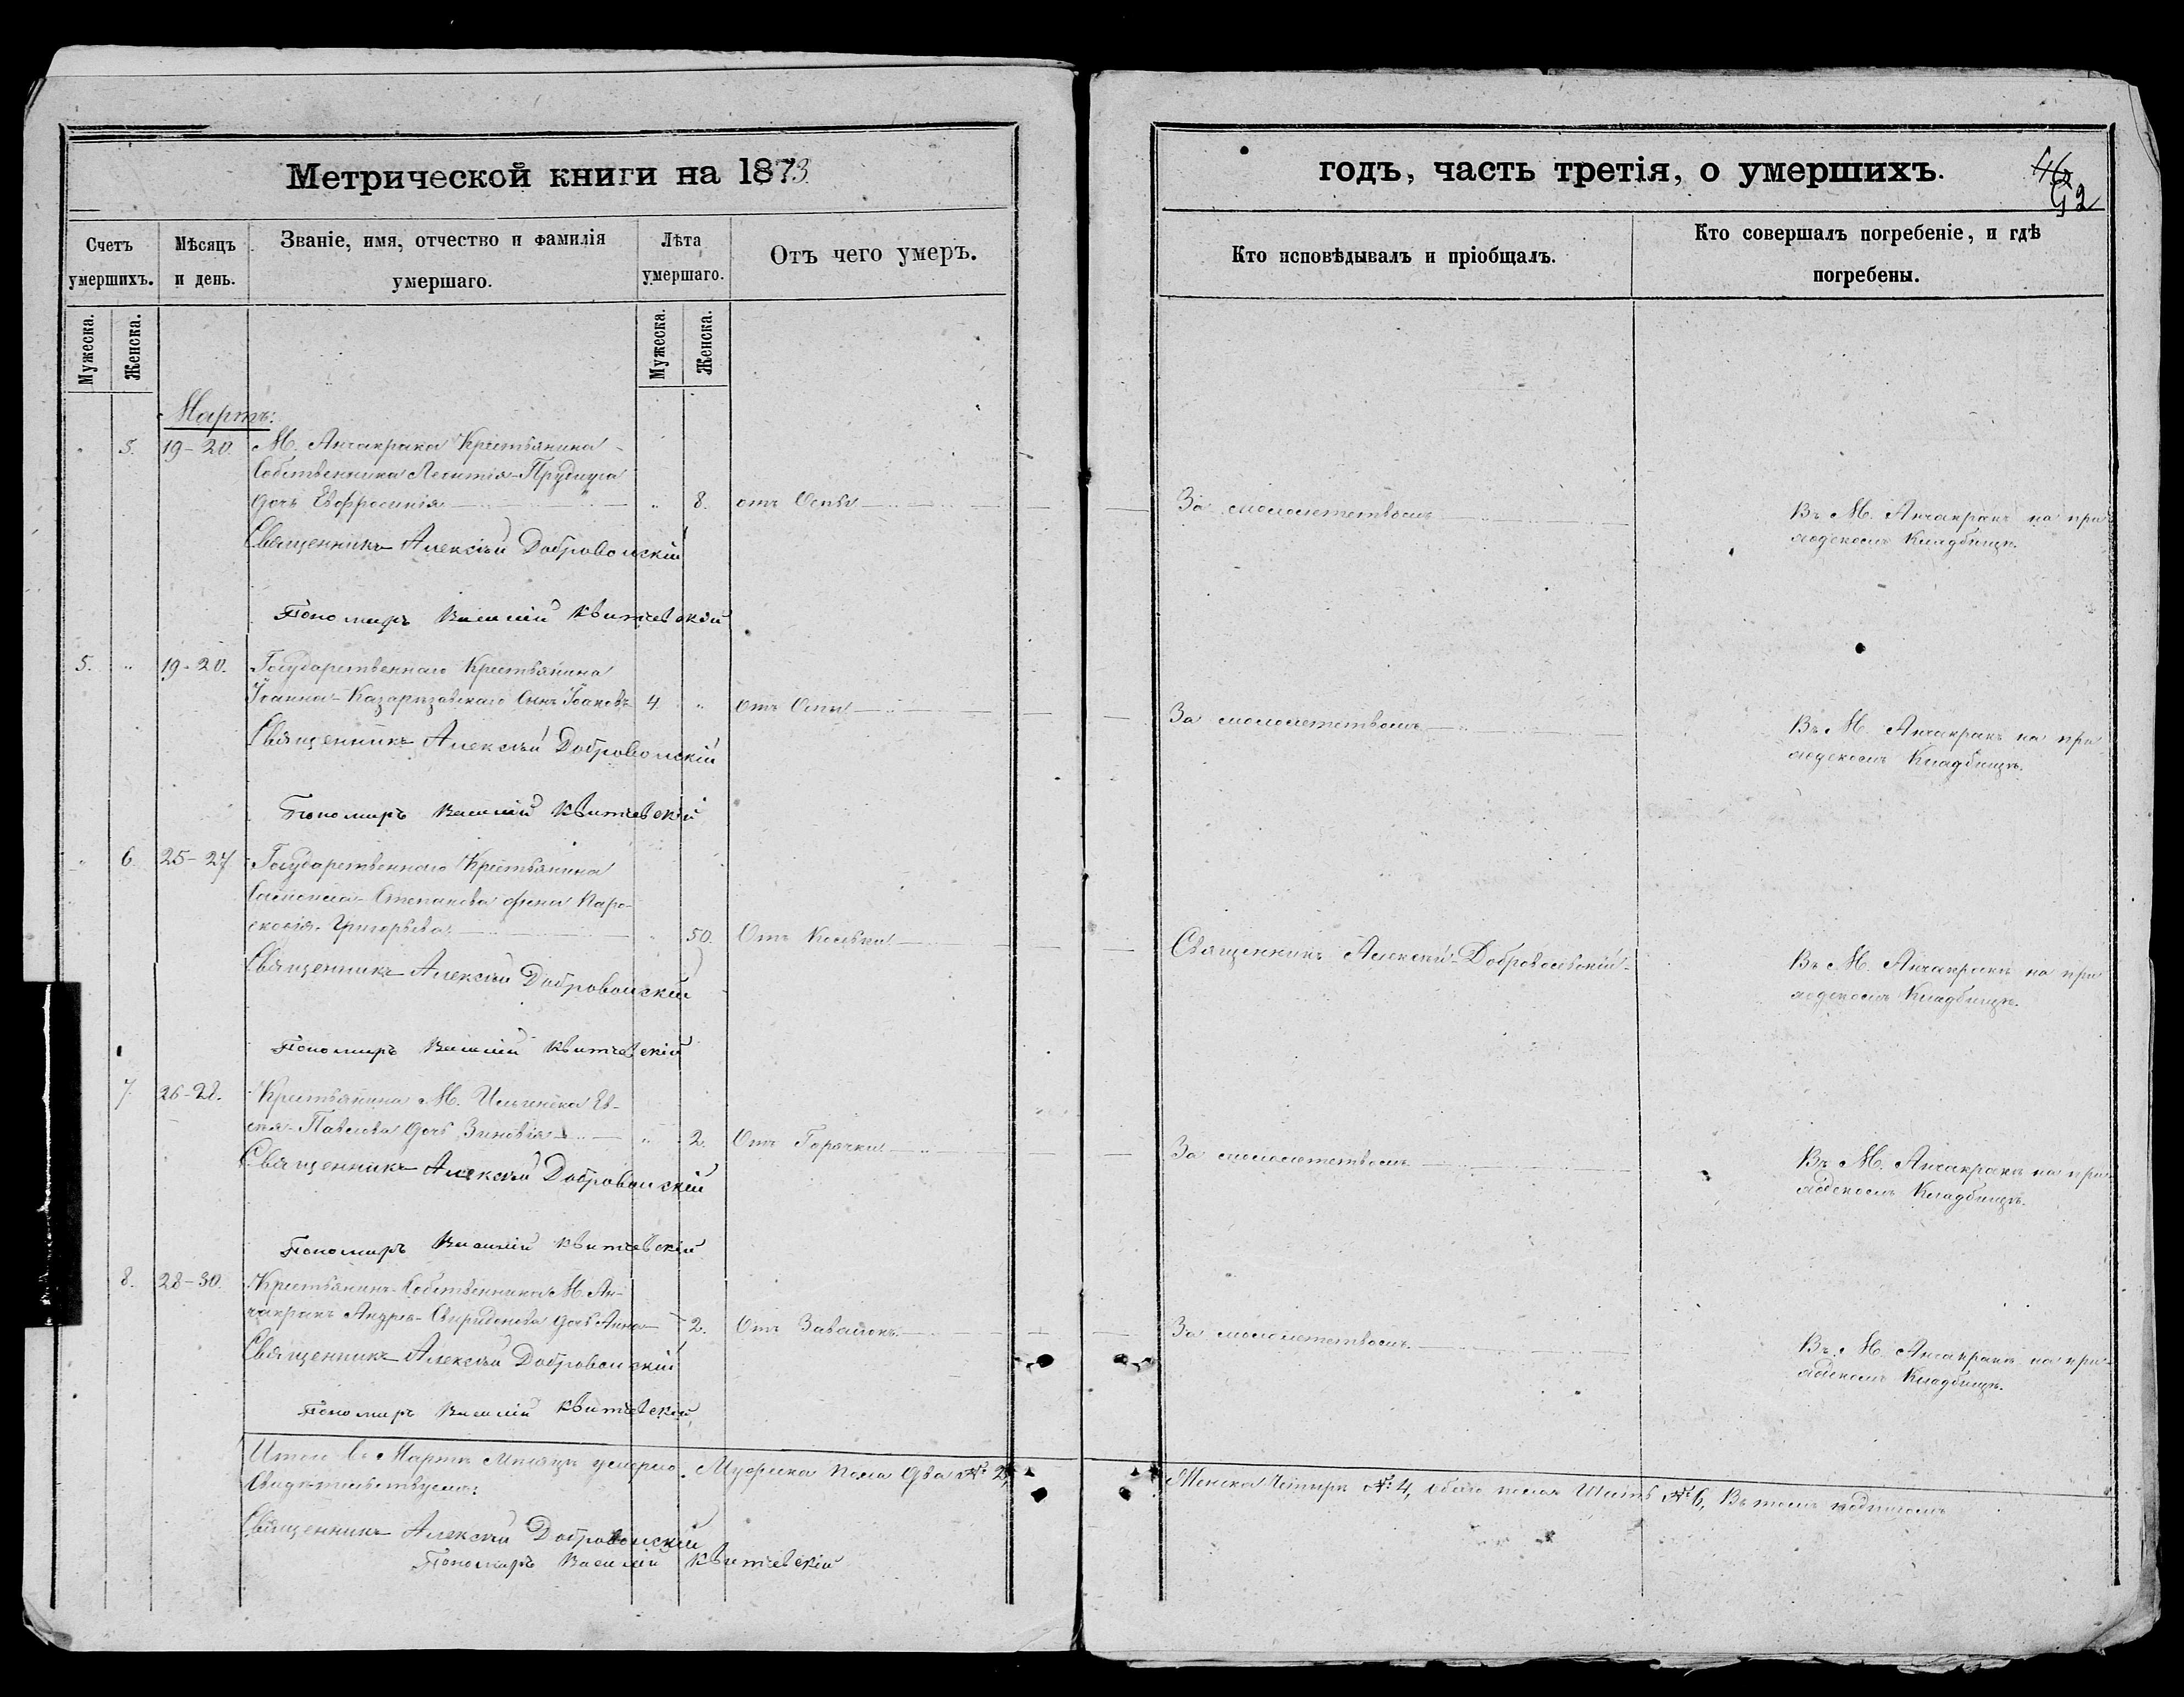 Метрической книги на 1873
Счетъ умершихъ.
Мѣсяцъ и день.
Званіе, имя, отчество и фамилія умершаго.
Лѣта умершаго.
Отъ чего умеръ.
Мужеска.
Женска.
Мужеска.
Женска.
Мартъ:
5. 19-20. М. Анчакрака Крестьянина
Собственника Леонтія Прудиуса
дочь Евфросинія 8. отъ Оспы
Священникъ Алексѣй Добровольскій
Пономарь Василій Квитчевскій
5. 19-20. Государственнаго Крестьянина
Іоанна сынъ Іаковъ 4 отъ Оспы
Священникъ Алексѣй Добровольскій
Пономарь Василій Квитчевскій
6. 25-27 Государственнаго Крестьянина
Степанова жена Паро-
сковія Григорьева 50. Отъ
Священникъ Алексѣй Добровольскій
Пономарь Василій Квитчевскій
7. 26-28. Крестьянина М. Ев-
Павлова дочь Зиновія 2. Отъ Горячки
Священникъ Алексѣй Добровольскій
Пономарь Василій Квитчевскій
8. 28-30. Крестьянина Собственника М. Ан-
чакракъ Андрея Свиридонова дочь Анна 2. Отъ
Священникъ Алексѣй Добровольскій
Пономарь Василій Квитчевскій
Итого въ Мартѣ Мѣсяцѣ умерло. Мужеска пола два № 2,
Свидѣтельствуемъ:
Священникъ Алексѣй Добровольскій
Пономарь Василій Квитчевскій
годъ, часть третія, о умершихъ.
46
62
Кто исповѣдывалъ и пріобщалъ.
Кто совершалъ погребеніе, и гдѣ
погребены.
За малолетствомъ
Въ М. Анчакракъ на при
ходскомъ Кладбищѣ.
За малолетствомъ
Въ М. Анчакракъ на при
ходскомъ Кладбищѣ.
Священникъ Алексѣй Добровольскій
Въ М. Анчакракъ на при
ходскомъ Кладбищѣ.
За малолетствомъ
Въ М. Анчакракъ на при-
ходскомъ Кладбищѣ.
За малолетствомъ
Въ М. Анчакракъ на при-
ходскомъ Кладбищѣ.
Женска Четыре № 4, обоего пола Шесть № 6, Въ томъ подписомъ